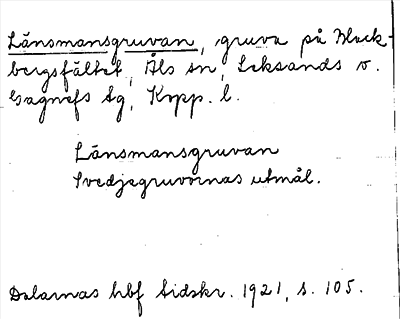 Länsmansgruvan, gruva på Black-
bergsfältet, Åls sn, Leksands o.
Gagnefs tg, Kopp. l.
Länsmansgruvan
Svedjegruvornas utmål.
Dalarnas hbf tidskr. 1921, s. 105.